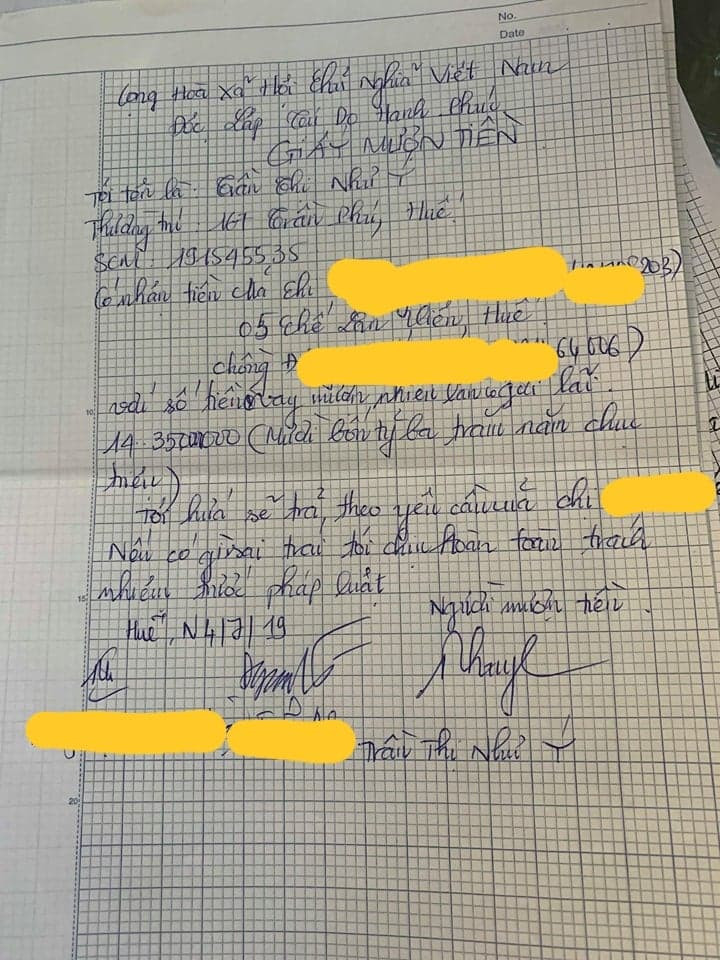 No.
Date
Cộng Hoà Xã Hội Chủ Nghĩa Việt Nam
Độc Lập Tự Do Hạnh Phúc
GIẤY MƯỢN TIỀN
Tôi tên là: Trần Thị Như Ý
Thường trú: 161 Trần Phú, Huế.
SCM: 191545535
Có nhận tiền của chị 203)
05 Chế Lan Viên, Huế
chồng 64006)
với số tiền vay mượn nhiều lần
14.350 (Mười bốn tỷ ba trăm năm chục
triệu)
Tôi hứa sẽ trả theo yêu cầu của chị
Nếu có gì sai trái tôi chịu hoàn toàn trách
nhiệm trước pháp luật
Người mượn tiền.
Huế, N 4/7/19
Trần Thị Như Ý
10
15
20